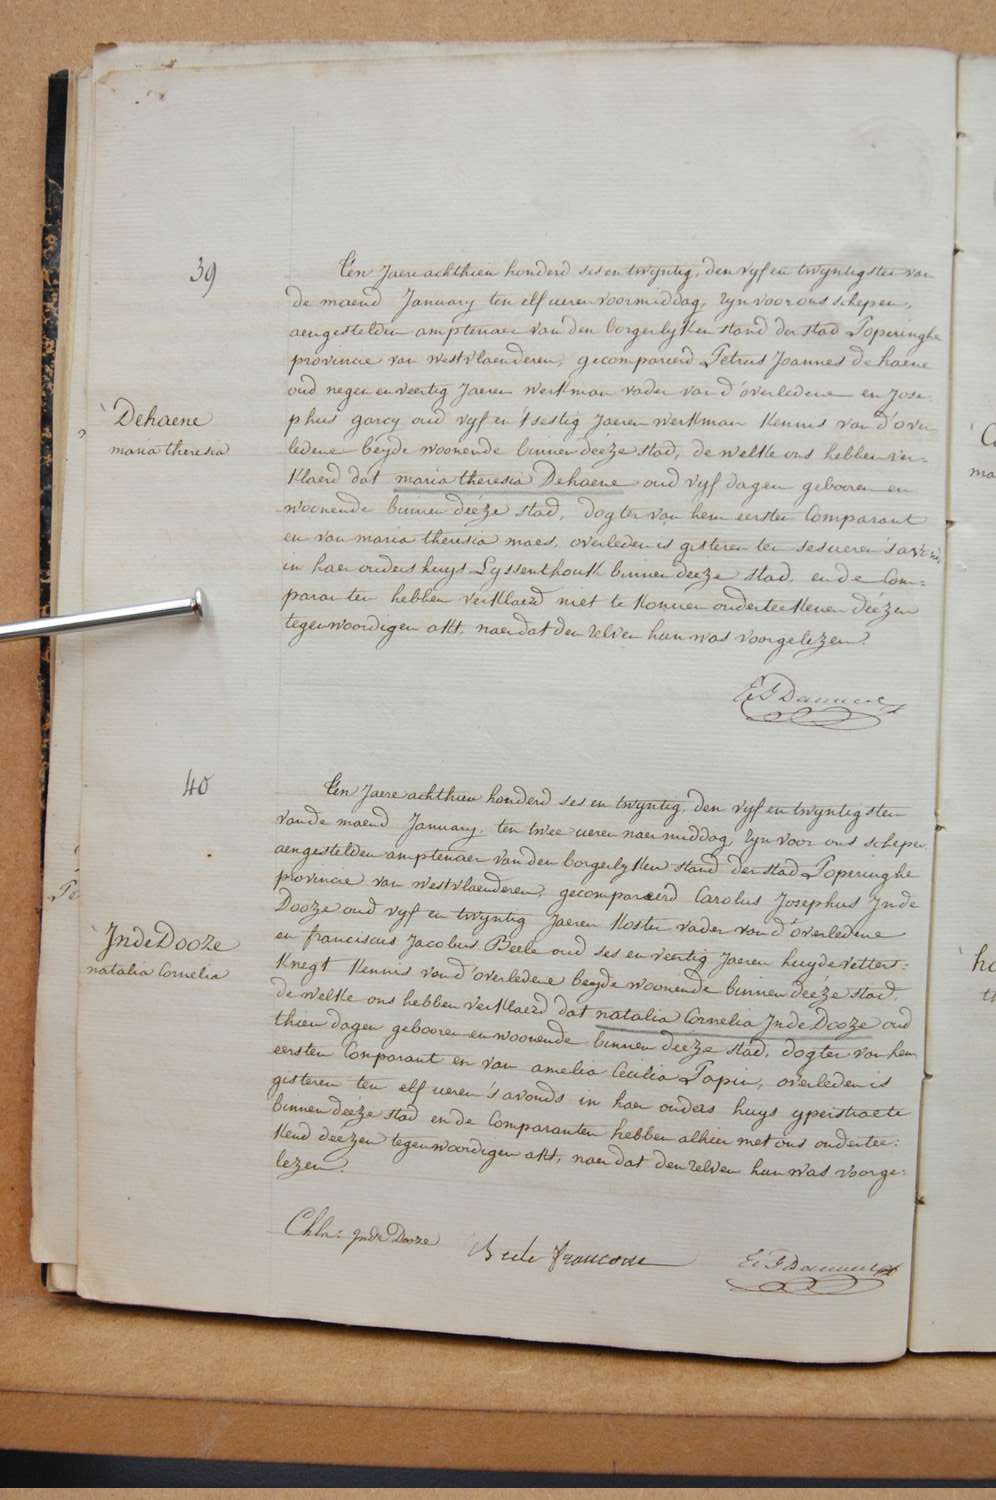 39
Ten Jaere achthien honderd ses en twyntig, den vyf en twyntigsten van
de maend January ten elf ueren voormiddag, zyn voor ons schepen,
aengestelden amptenaer van den borgerlyken stand der stad Poperinghe
provincie van westvlaenderen, gecompareerd Petrus Joannes dehaene
oud negen en veertig Jaeren werkman vader van d'overledene en Jose-
phus garcy oud vyf en 'tsestig Jaeren werkman kennis van d'over
ledene beyde woonende binnen deéze stad, de welke ons hebben ver-
klaerd dat maria theresia Dehaene oud vyf dagen gebooren en
woonende binnen deéze stad, dogter van hem eersten Comparant
en van maria theresia maes, overleden is gisteren ten ses ueren 's av'nds
in haer ouders huys Lyssenthouk binnen deeze stad, en de Com-
paranten hebben verklaerd niet te konnen onderteekenen deézen
tegenwoordigen akt, naer dat den zelven hun was voorgelezen.
Dehaene
maria theresia
40
Ten Jaere achthien honderd ses en twyntig, den vyf en twyntigsten
van de maend January, ten twee ueren naer middag, zyn voor ons schepen
aengestelden amptenaer van den borgerlyken stand der stad Poperinghe
provincie van westvlaenderen, gecompareerd Carolus Josephus Jnde
Dooze oud vyf en twyntig Jaeren koster vader van d'overledene
en franciscus Jacobus Beele oud ses en veertig Jaeren huydevetters-
knegt kennis van d'overledene beyde woonende binnen deéze stad,
de welke ons hebben verklaerd dat natalia Cornelia JndeDooze oud
thien dagen gebooren en woonende binnen deéze stad, dogter van hem
eersten Comparant en van amelia Cecilia Papin, overleden is
gisteren ten elf ueren 's avonds in haer ouders huys yperstraete
binnen deéze stad en de Comparanten hebben alhier met ons ondertee-
kend deézen tegenwoordigen akt, naer dat den zelven hun was voorge-
lezen.
JndeDooze
natalia Cornelia
Jnde Dooze
Beele